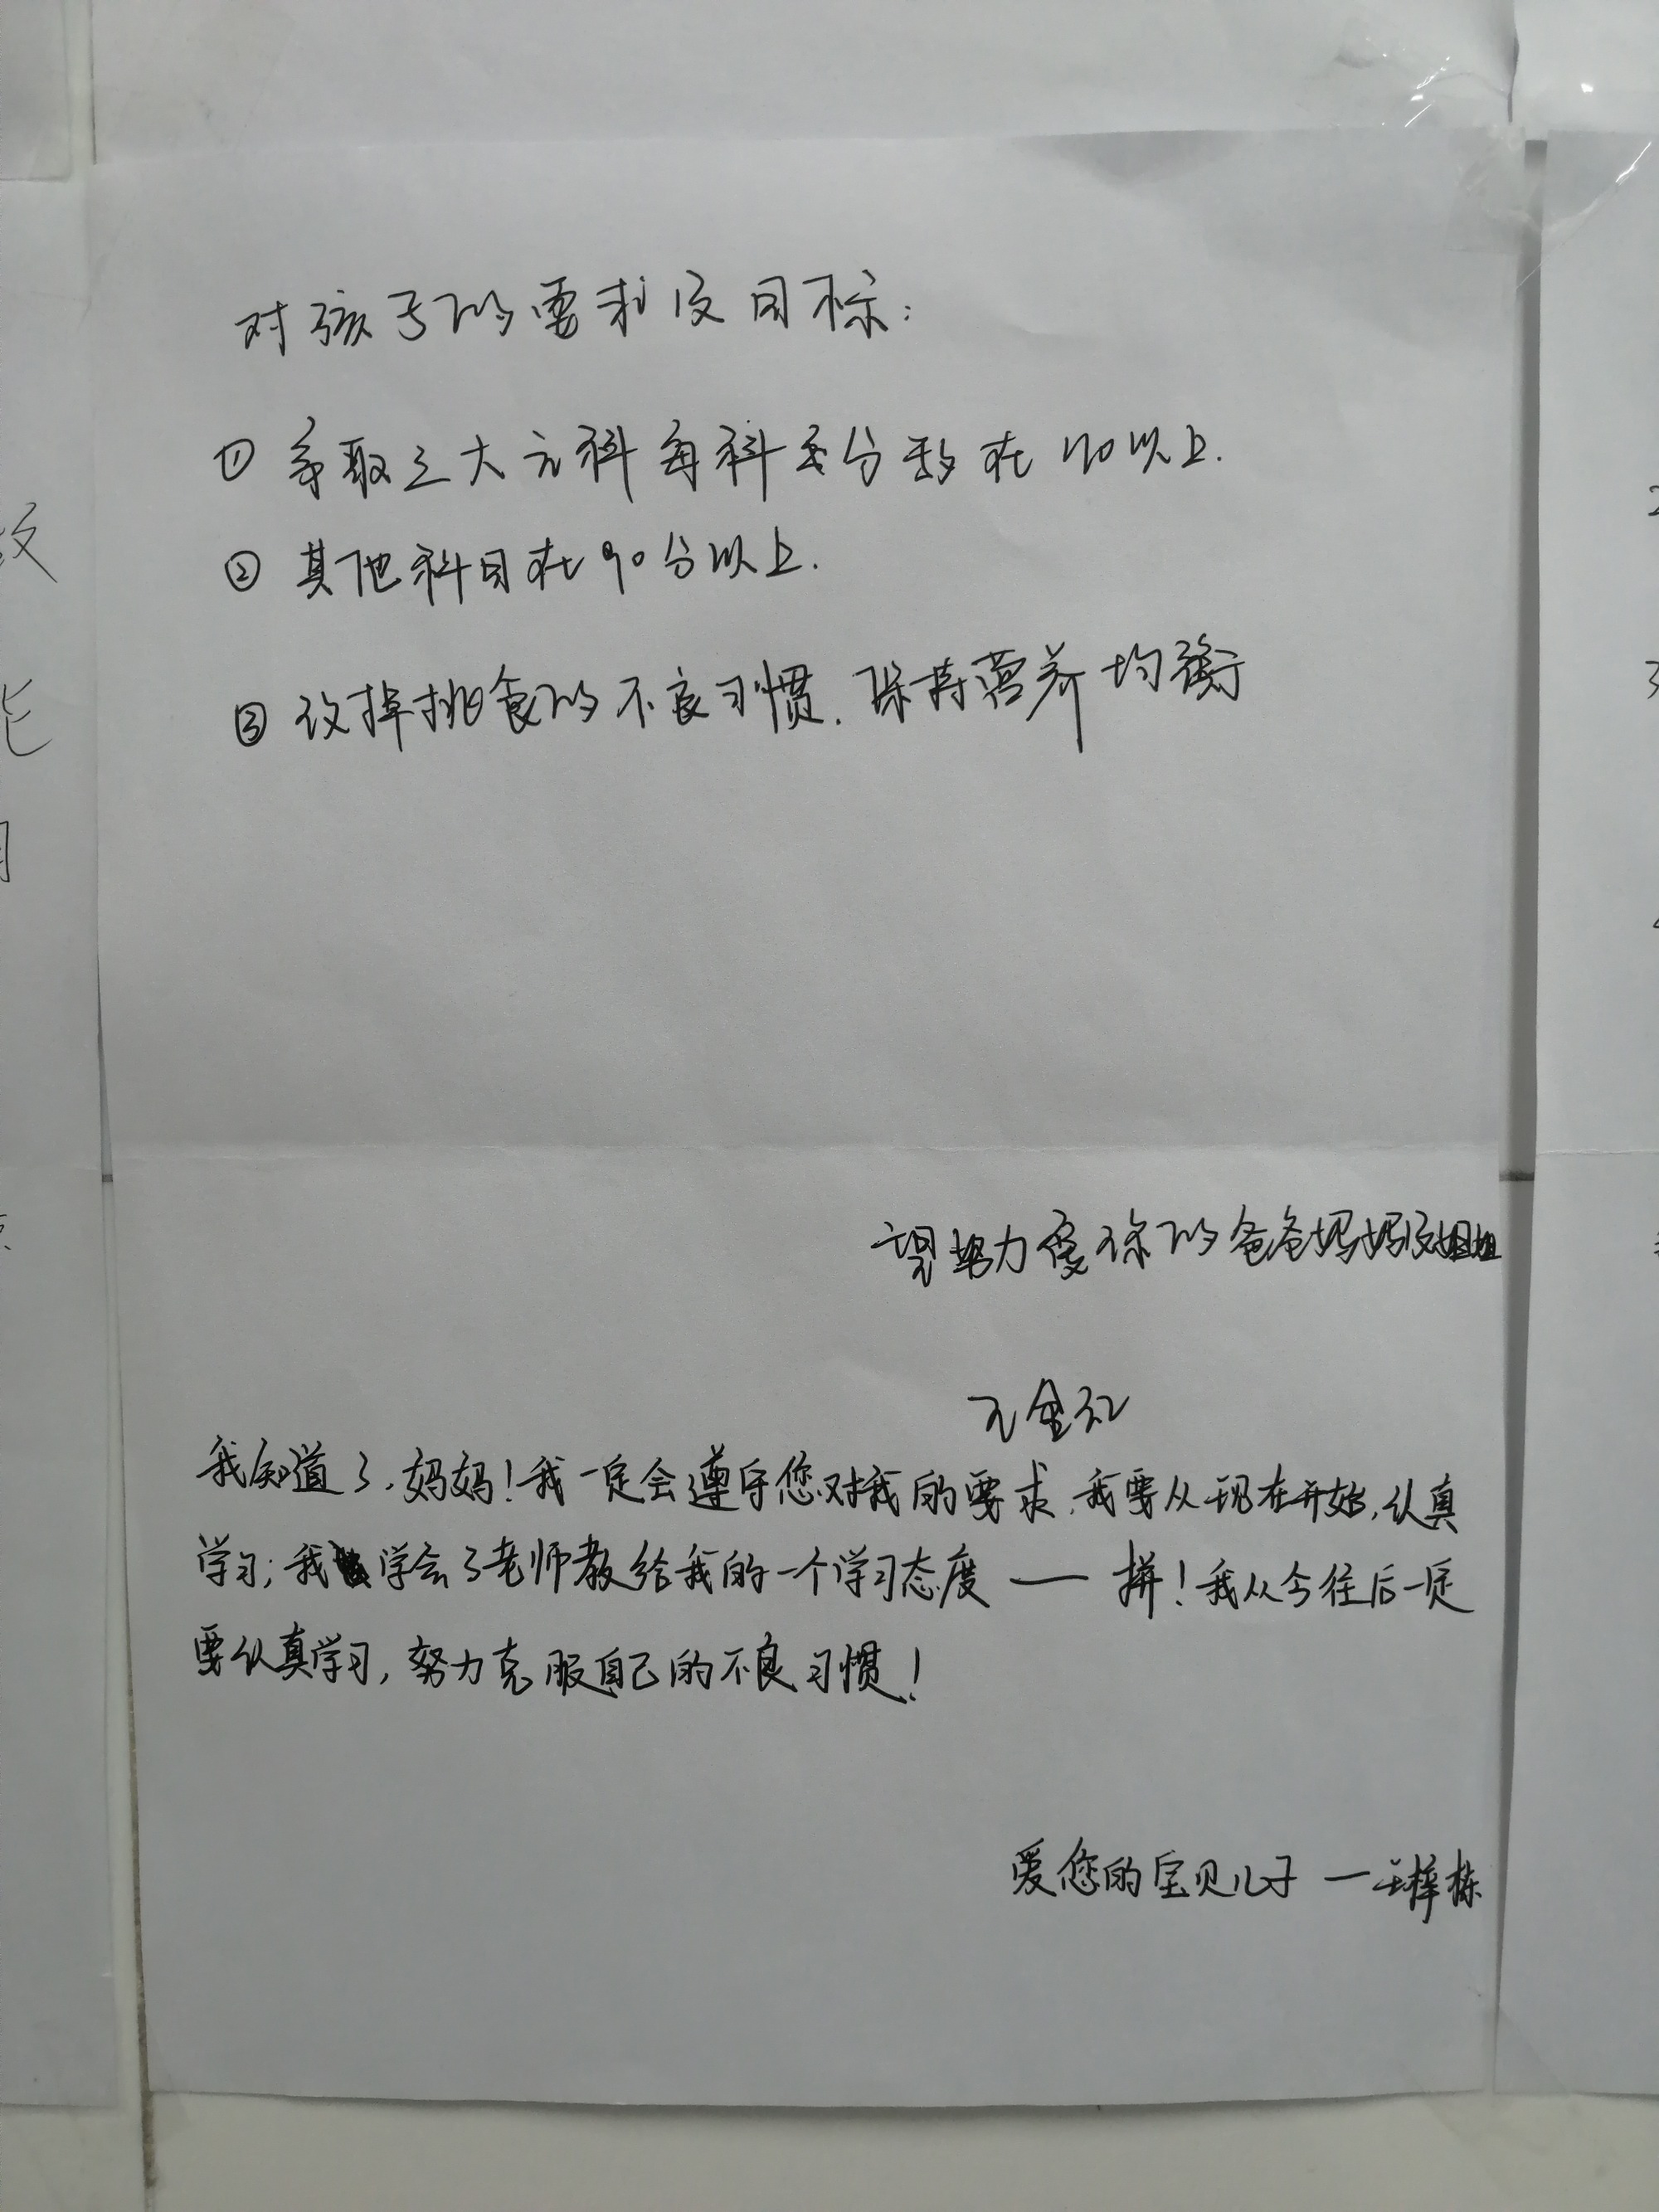 对孩子的要求及目标:
① 争取三大主科每科总分数在110以上.
② 其他科目在90分以上.
③ 改掉挑食的不良习惯.保持营养均衡
望努力爱你的爸爸妈妈及姐姐
王金红
我知道了,妈妈!我一定会遵守您对我的要求,我要从现在开始,认真
学习;我学会了老师教给我的一个学习态度——拼!我从今往后一定
要认真学习,努力克服自己的不良习惯!
爱您的宝贝儿子 — 王梓栋